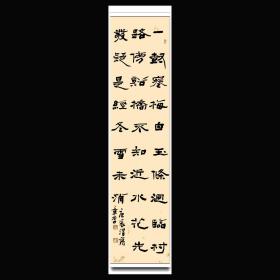 一樹寒梅白玉條迥臨村
路傍谿橋不知近水花先
發疑是經冬雪未消